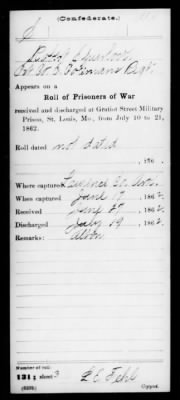 (Confederate.)
S
Appears on a
Roll of Prisoners of War
received and discharged at Gratiot Street Military
Prison, St. Louis, Mo., from July 10 to 21,
1862.
Roll dated not dated
, 186 .
Where captured Lawrence Co. Ark.
When captured June 17, 1862.
Received June 27, 1862.
Discharged July 19, 1862.
Remarks: Alton
Number of roll:
131; sheet 3
L. E. Fehl
Copyist.